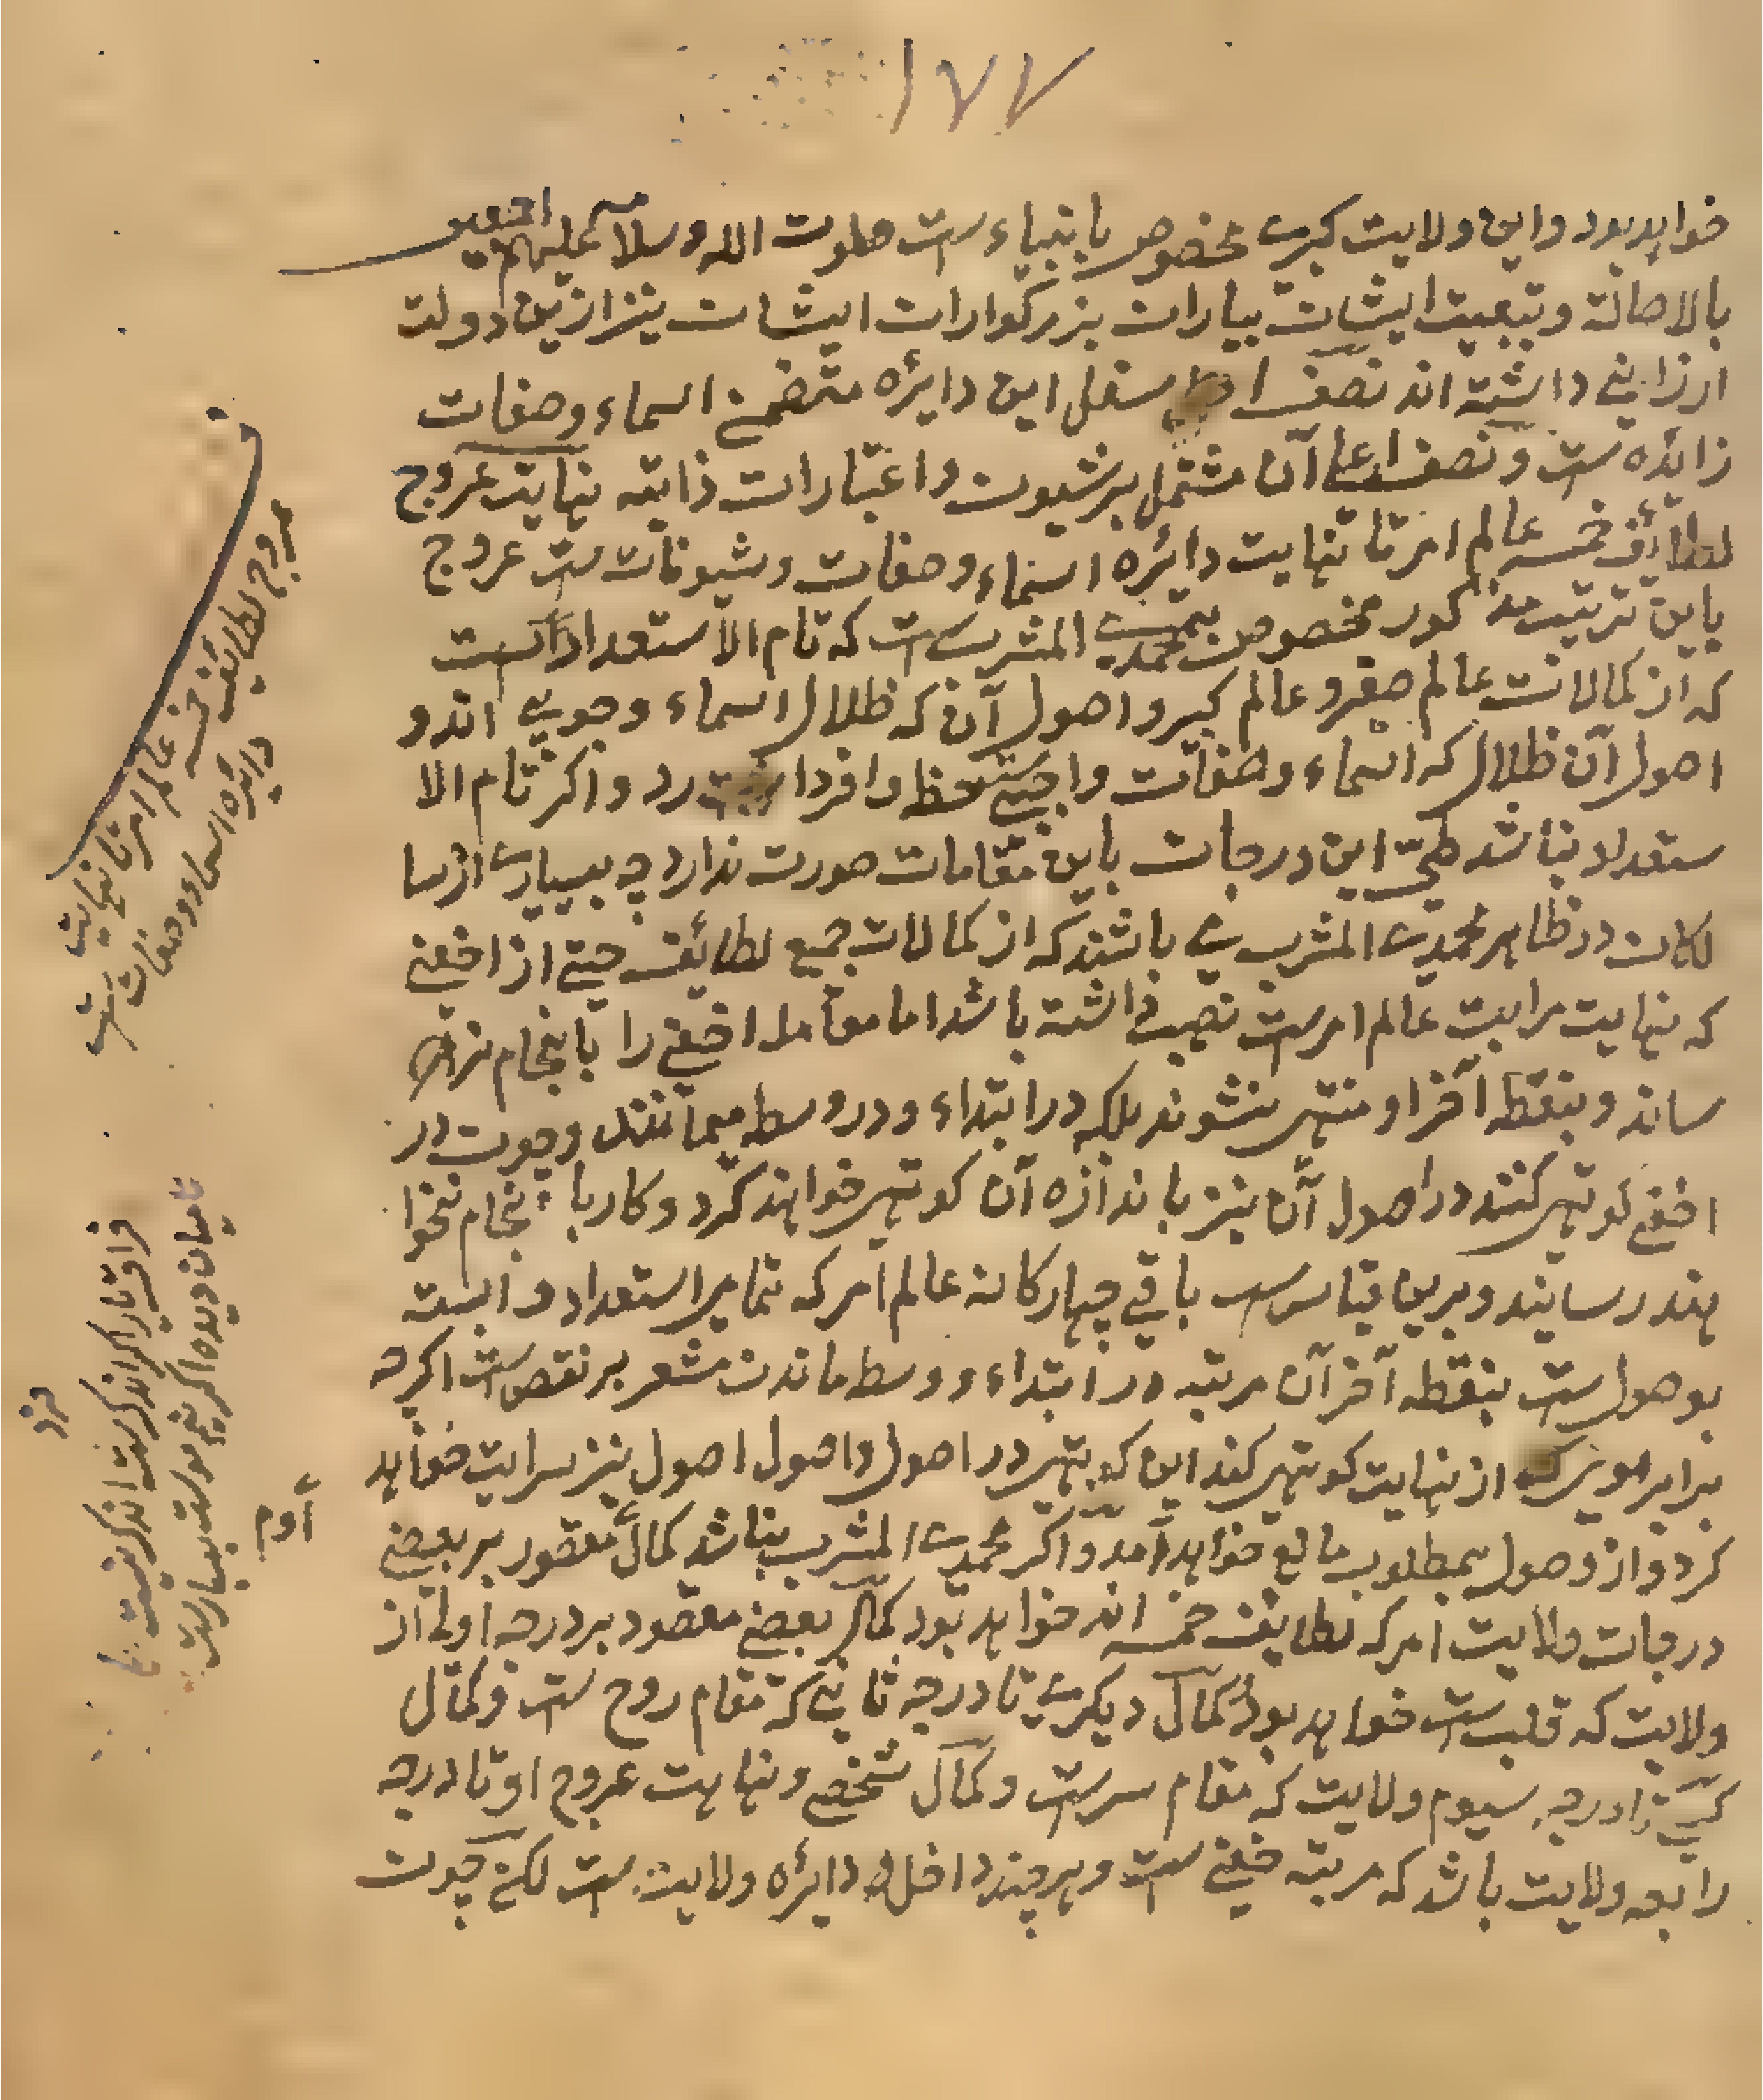 ۱۷۷
خواهد بود و این ولایت کبری مخصوص بانبیاءست صلوت الله و سلامه علیهم اجمعین
بالاصالة و تبعیت ایشان بیاران بزرکواران ایشان نیز ازین دولت
ارزانی داشته اند نصف سفلی این دایره متضمن اسماء و صفات
زائده ست و نصف اعلی آن مشتمل بر شیون و اعتبارات ذاتیه نهایت عروج
لطائف خمسه عالم امر تا نهایت دایره اسماء و صفات و شیونات ست عروج
باین ترتیب مذکور مخصوص بمحمدی المشرب ست که تام الاستعداد است
که از کمالات عالم صغر و عالم کبیر و اصول آن که ظلال اسماء وجوبی اند و
اصول آن ظلال که اسماء و صفات واجبی ست حظ وافر دارد و اکر تام الا
ستعداد نباشد طی این درجات باین مقامات صورت ندارد چه بسیاری از سا
لکان در ظاهر محمدی المشرب می باشند که از کمالات جمیع لطائف حتی از اخفی
که نهایت مراتب عالم امرست نصیب داشته باشد اما معامله اخفی را بانجام نر
سانند و بنقطه آخر او منتهی نشوند بلکه در ابتداء و در وسط میمانند و چون در
اخفی کوتهی کنند در اصول آن نیز باندازه آن کوتهی خواهند کرد و کار با نجام نخوا
هند رسانید و برین قیاس ست باقی چهارکانه عالم امر که تمامیر استعداد وابسته
بوصول ست بنقطه آخر آن مرتبه در ابتداء و وسط ماندن مشعر بر نقص ست اکرچه
برابر موی از نهایت کوتهی کند این کوتهی در اصول و اصول اصول نیز سرایت خواهد
کرد و از وصول بمطلوب مانع خواهد آمد و اکر محمدی المشرب نباشد کمال مقصور بر بعضی
درجات ولایت امر که لطایف خمسه اند خواهد بود کمال بعضی مقصود بر درجه اولی از
ولایت که قلب ست خواهد بود کمال دیکری تا درجه ثانی که مقام روح ست و کمال
کسی تا درجه سیوم ولایت که مقام سرست و کمال شخصی و نهایت عروج او تا درجه
رابعه ولایت باشد که مرتبه خفی ست و هر چند داخل دایره ولایت ست لکن چون
عروج لطائف خمسه عالم امر تا نهایت
دایره اسماء و صفات ست
فراق یار اکر اندک ست اندک نیست
میان دیده اکر نیم موست بسیارست
فرد